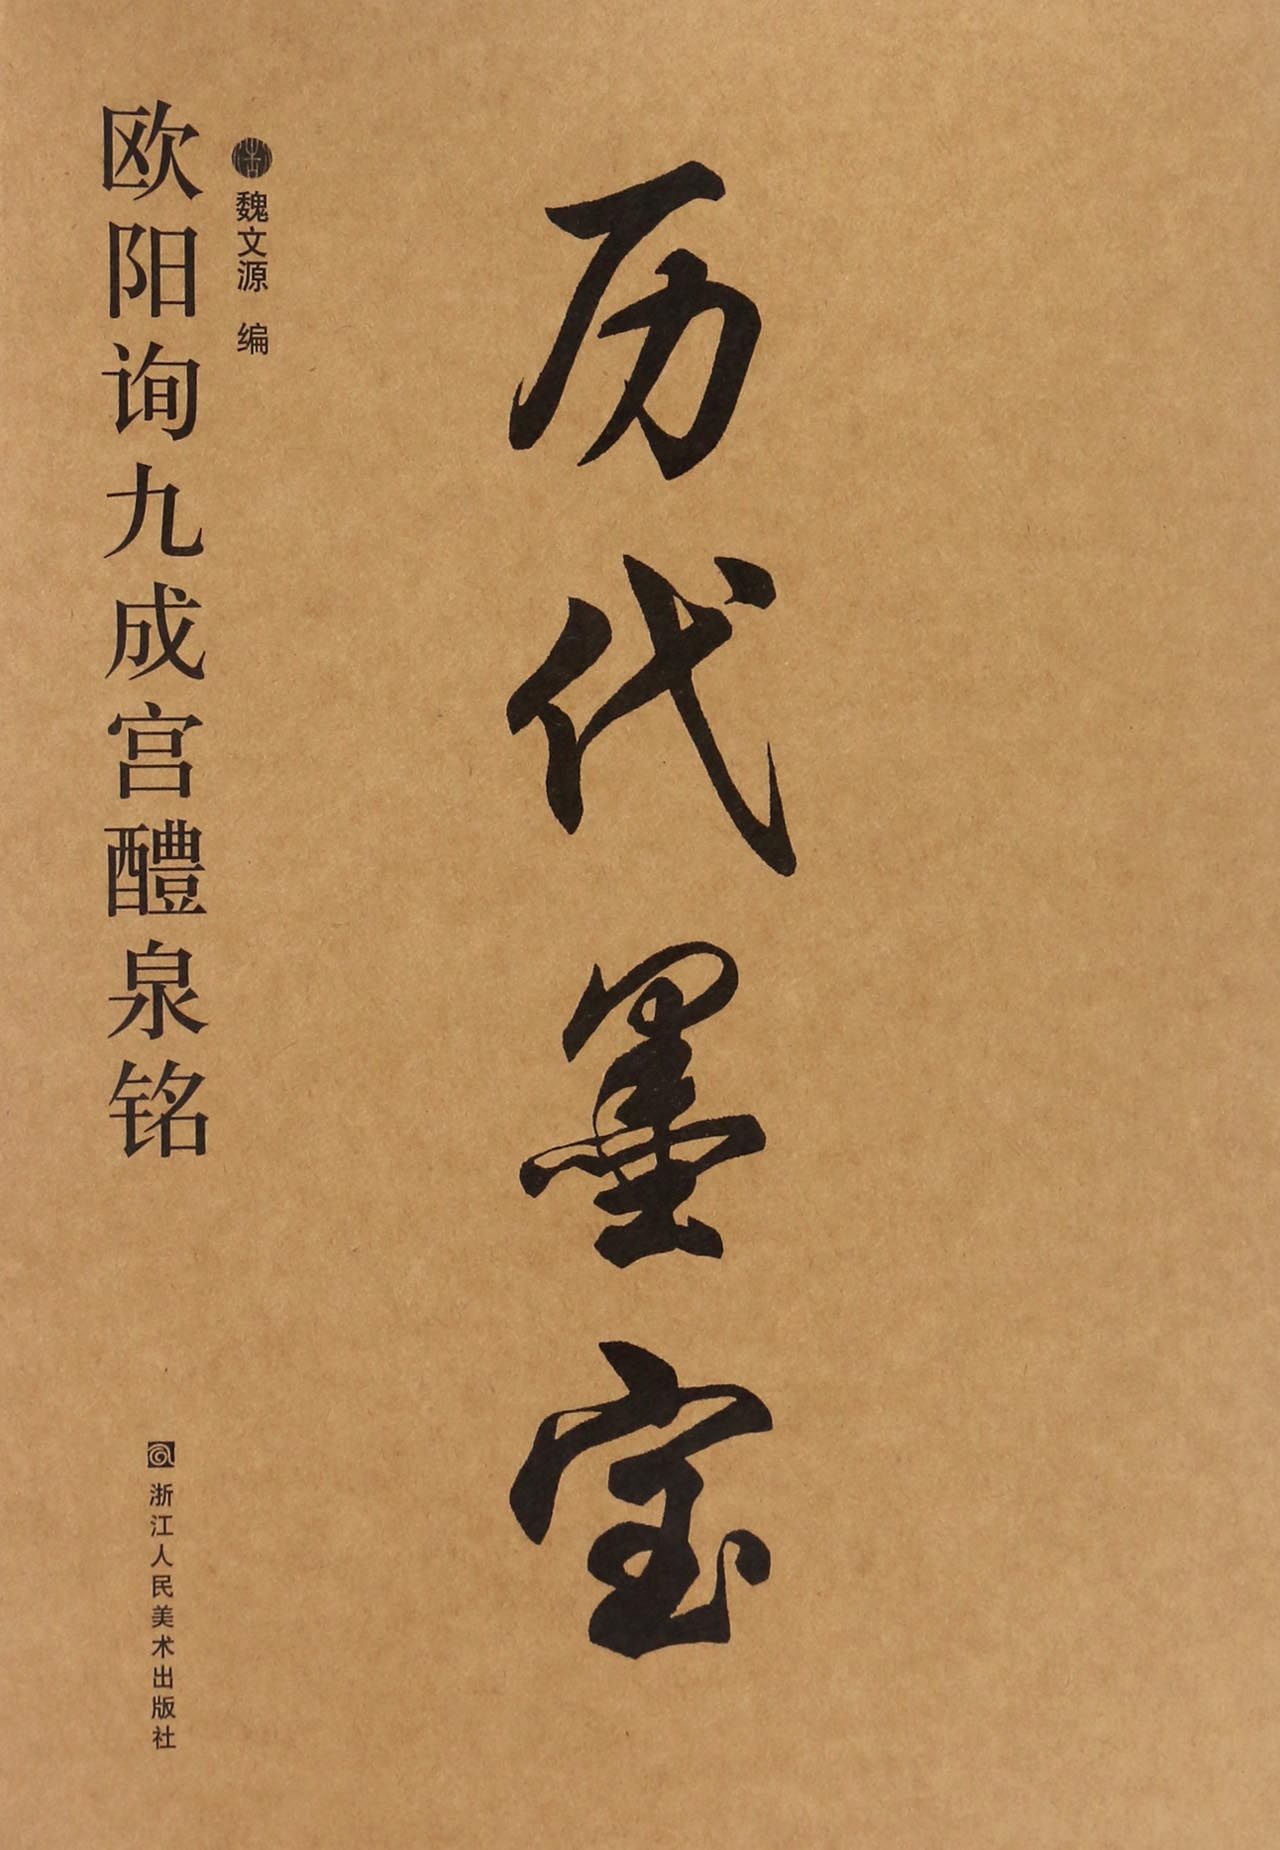 历代墨宝
魏文源 编
欧阳询九成宫醴泉铭
浙江人民美术出版社